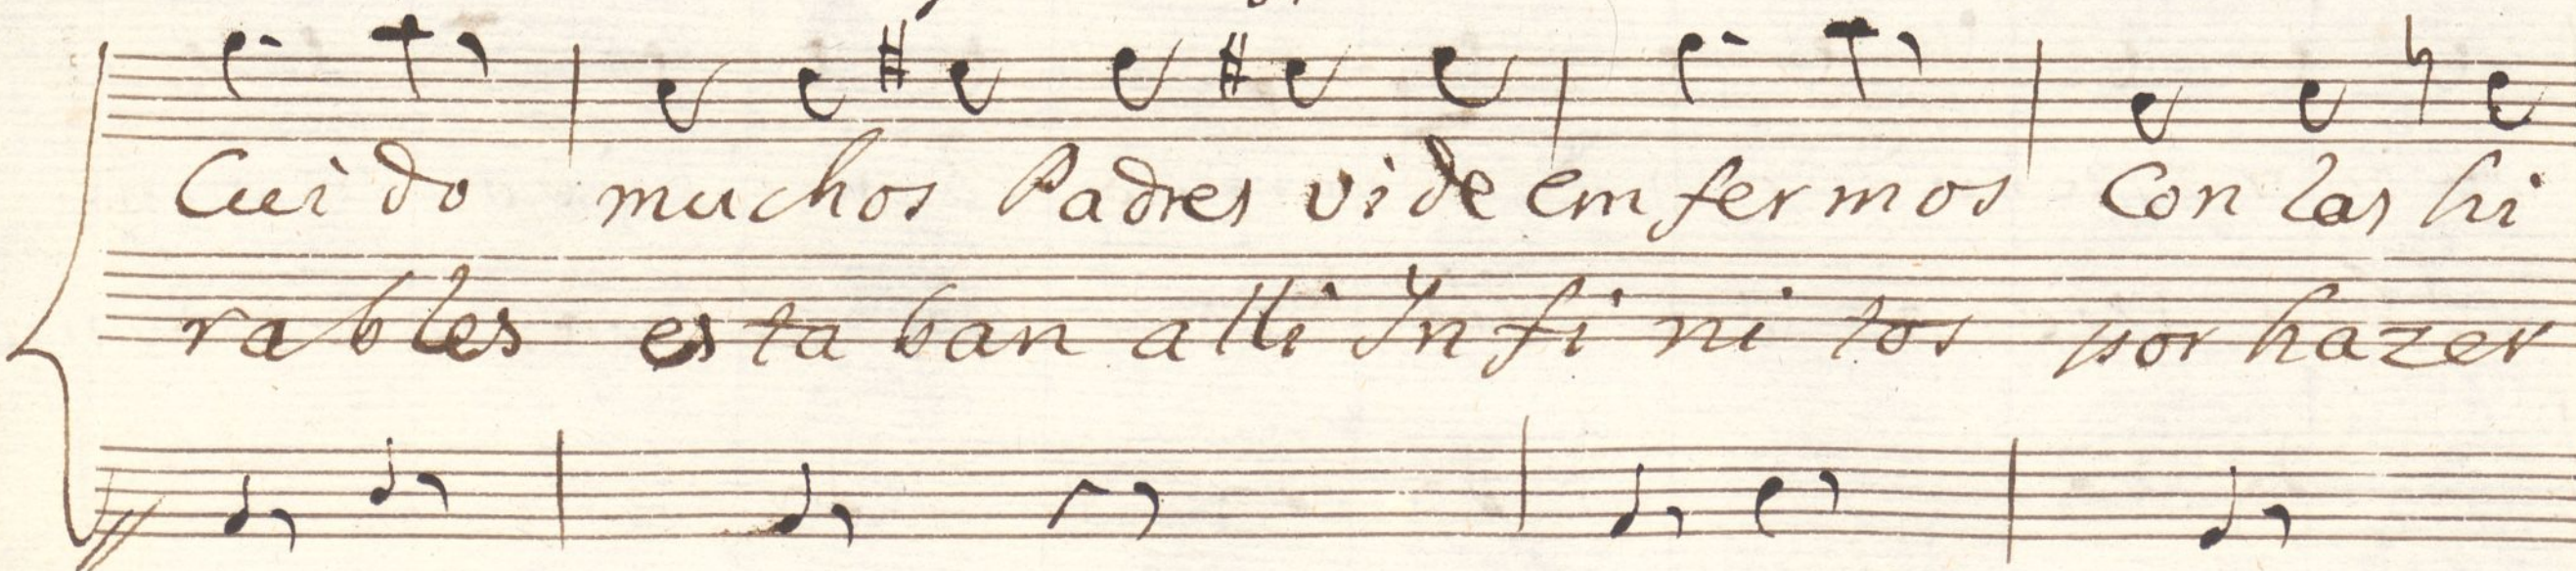 Cui do muchos Padres vi de em fer mos Con las hi
ra bles es ta ban a lli In fi ni tos por hazer